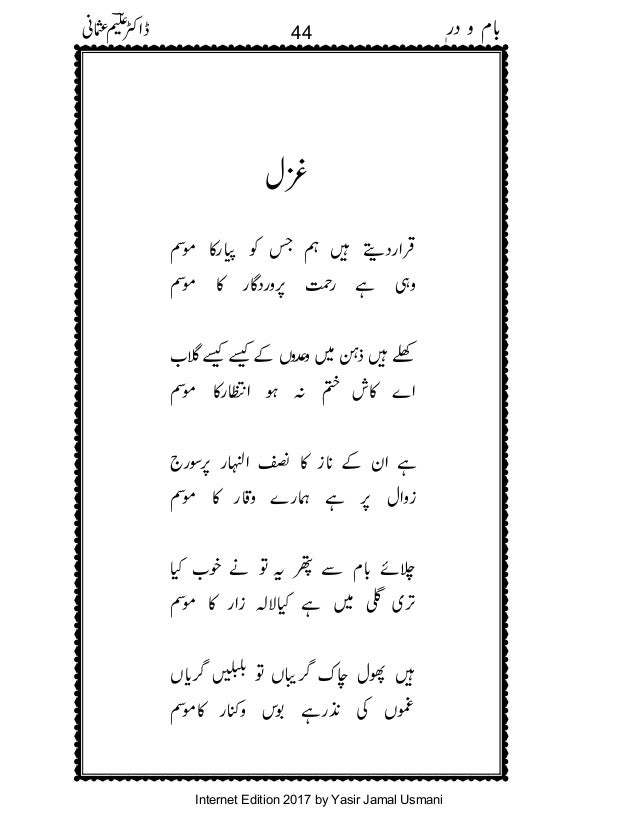 بام و در 44 ڈاکٹر علیم عثمانی
غزل
قرار دیتے ہیں ہم جس کو پیار کا موسم
وہی ہے رحمت پروردگار کا موسم
کھلے ہیں ذہن میں وعدوں کے کیسے کیسے گلاب
اے کاش ختم نہ ہو انتظار کا موسم
ہے ان کے ناز کا نصف النہار پر سورج
زوال پر ہے ہمارے وقار کا موسم
چلائے بام سے پتھر یہ تو نے خوب کیا
تری گلی میں ہے کیا لالہ زار کا موسم
ہیں پھول چاک گریباں تو بلبلیں گریاں
غموں کی نذر ہے بوس وکنار کا موسم
Internet Edition 2017 by Yasir Jamal Usmani